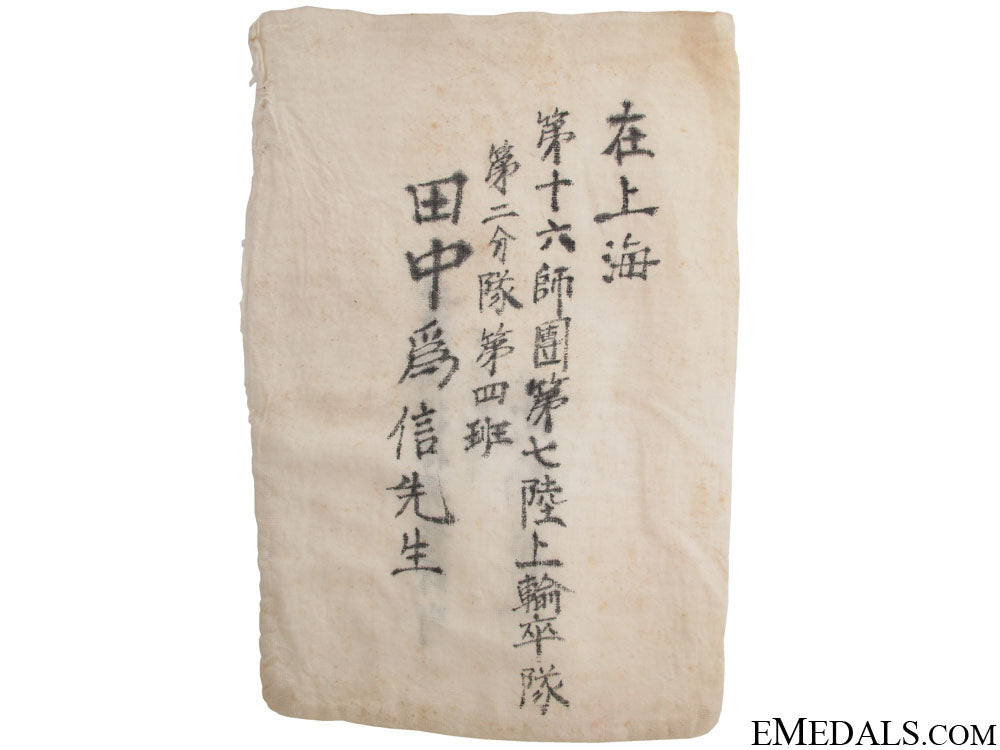 在上海
第十六師團第七陸上輸卒隊
第二分隊第四班
田中爲信先生
EMEDALS.COM